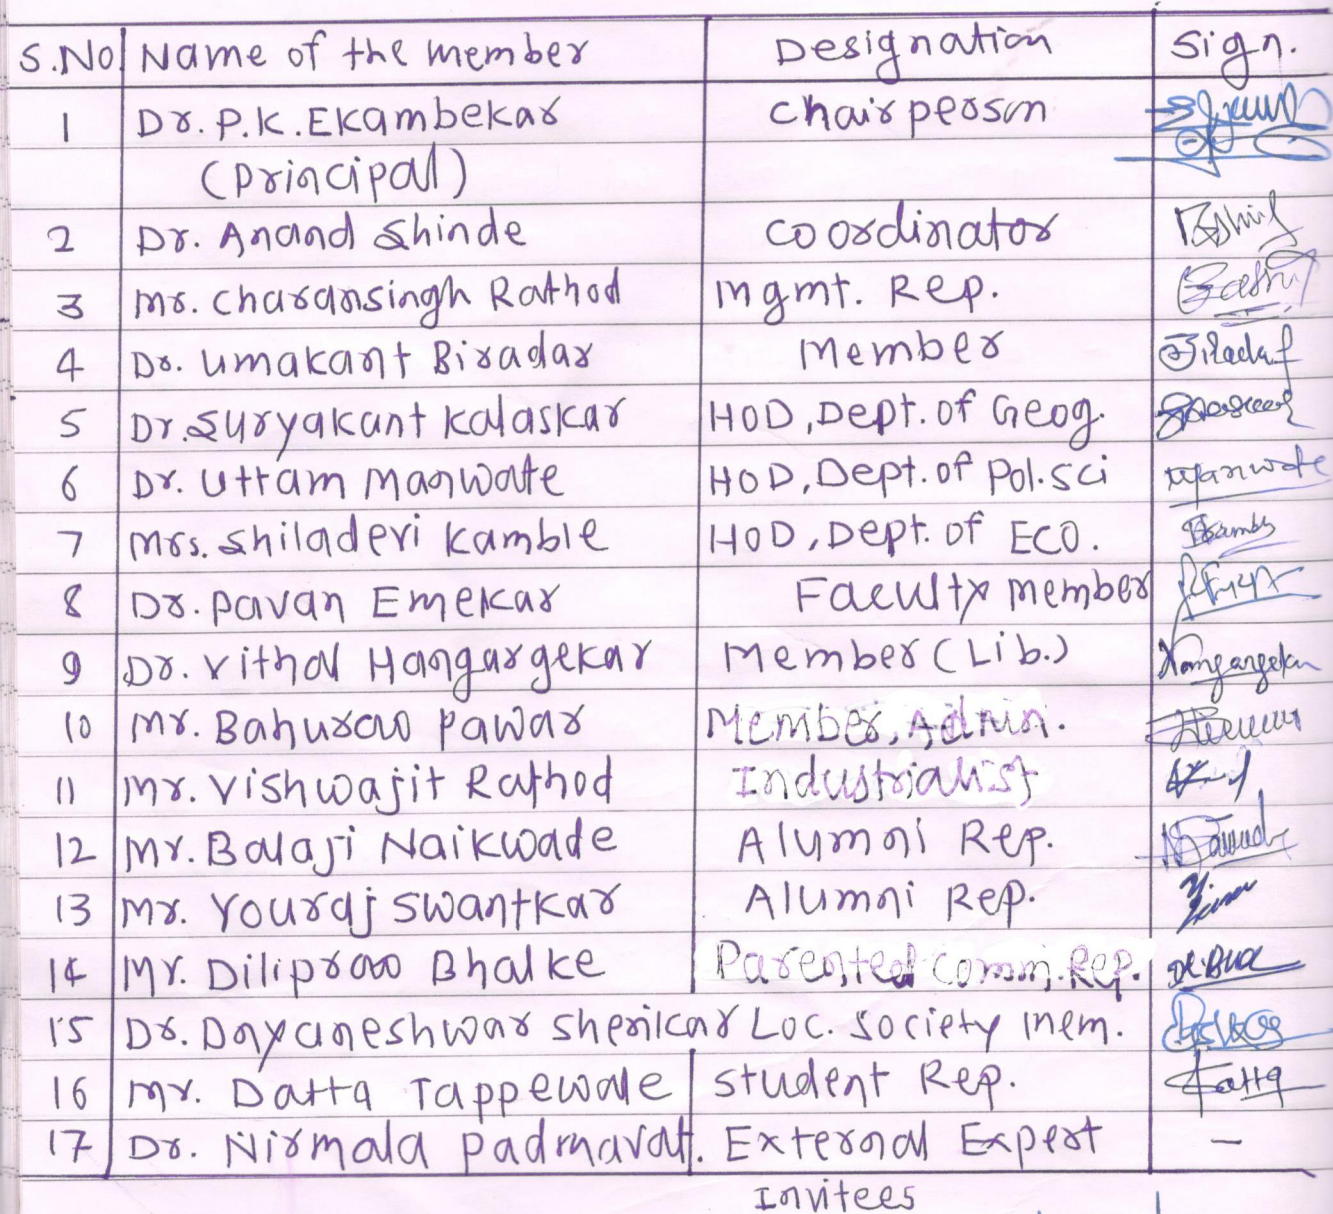 S.No Name of the member Designation Sign.
1 Dr. P.K. Ekambekar Chairperson
(principal)
2 Dr. Anand Shinde Coordinator
3 Mr. Charansingh Rathod Mgmt. Rep.
4 Dr. Umakant Biradar Member
5 Dr. Suryakant Kalaskar HOD, Dept. of Geog.
6 Dr. Uttam Manwate HOD, Dept. of Pol. Sci
7 Mrs. Shiladevi Kamble HOD, Dept. of ECO.
8 Dr. Pavan Emekar Faculty Member
9 Dr. Vithal Hangargekar Member (Lib.)
10 Mr. Bahurao Pawar Member, Admin.
11 Mr. Vishwajit Rathod Industrialist
12 Mr. Balaji Naikwade Alumni Rep.
13 Mr. Youraj Swantkar Alumni Rep.
14 Mr. Diliprao Bhalke Parented Comm. Rep.
15 Dr. Dnyaneshwar Shenikar Loc. Society Mem.
16 Mr. Datta Tappewale Student Rep.
17 Dr. Nirmala Padmavat. External Expert –
Invitees